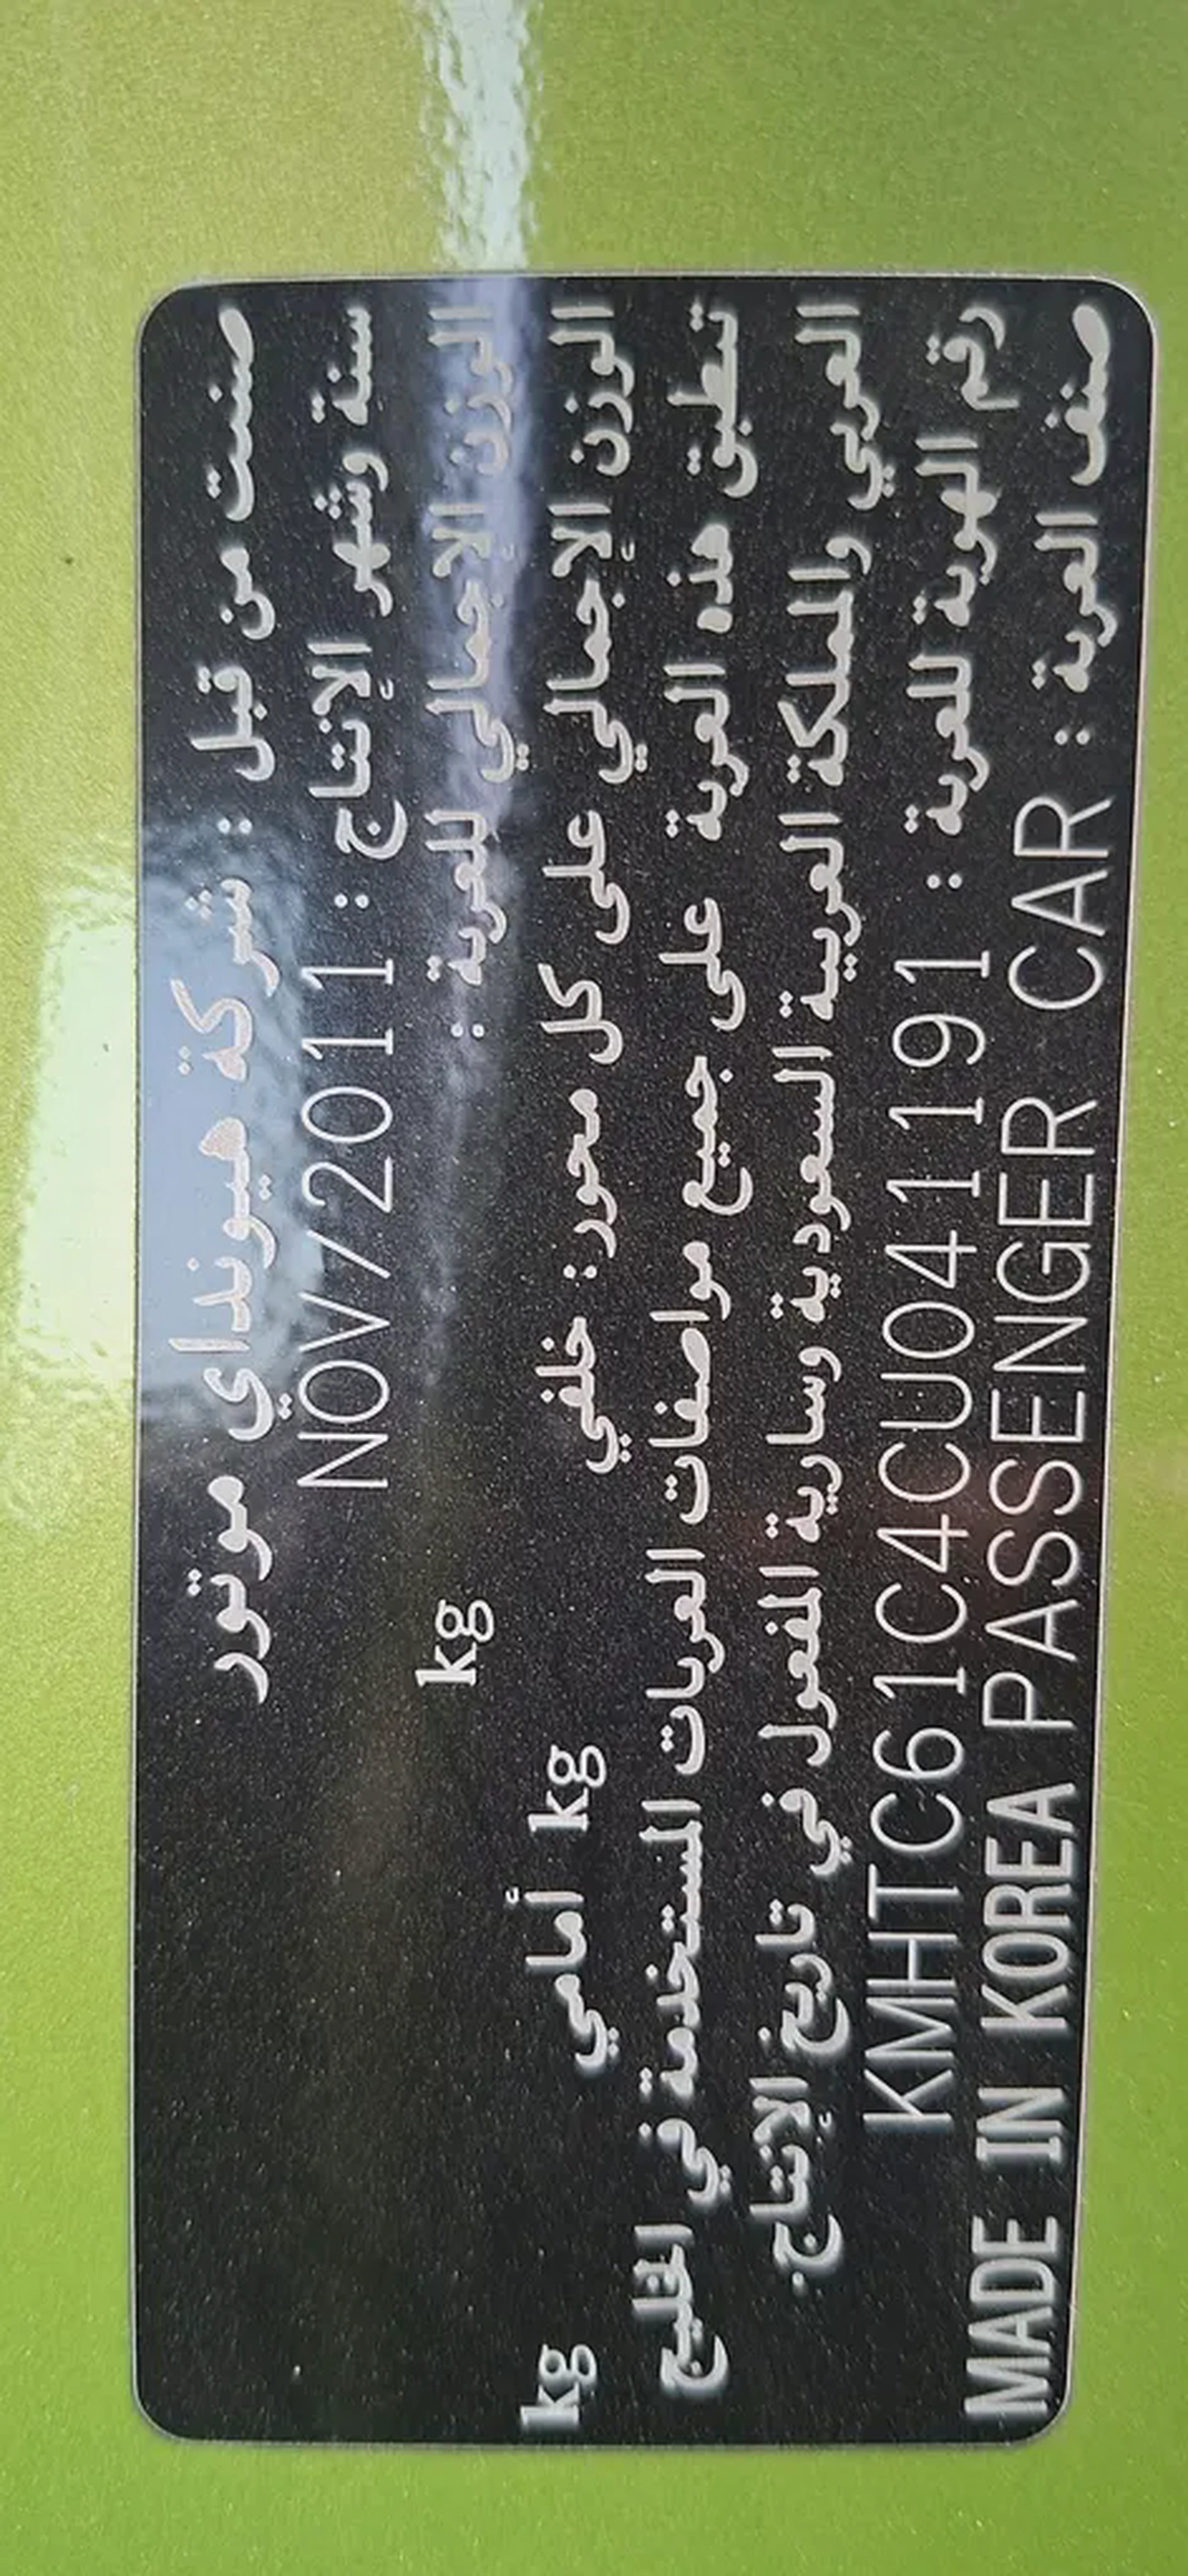 صنعت من قبل : شركة هيونداي موتور
سنة وشهر الإنتاج : NOV/2011
الوزن الإجمالي للعربة : kg
الوزن الإجمالي على كل محور: خلفي kg أمامي kg
تنطبق هذه العربة على جميع مواصفات العربات المستخدمة في الخليج
العربي والمملكة العربية السعودية وسارية المفعول في تاريخ الإنتاج.
رقم الهوية للعربة : KMHTC61C4CU041191
صنف العربة : PASSENGER CAR MADE IN KOREA